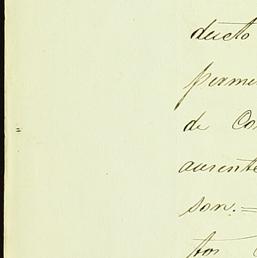 ducto
perme
de Co
aurente
son.=
tos